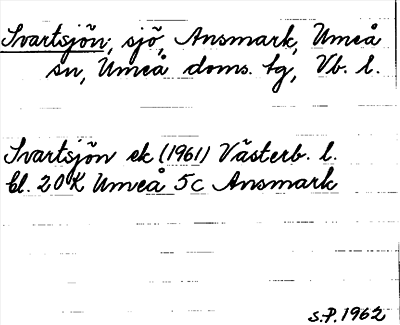 Svartsjön, sjö, Ansmark, Umeå
sn, Umeå doms. tg, Vb. l.
Svartsjön ek (1961) Västerb. l.
bl. 20K Umeå 5c Ansmark
S.P. 1962